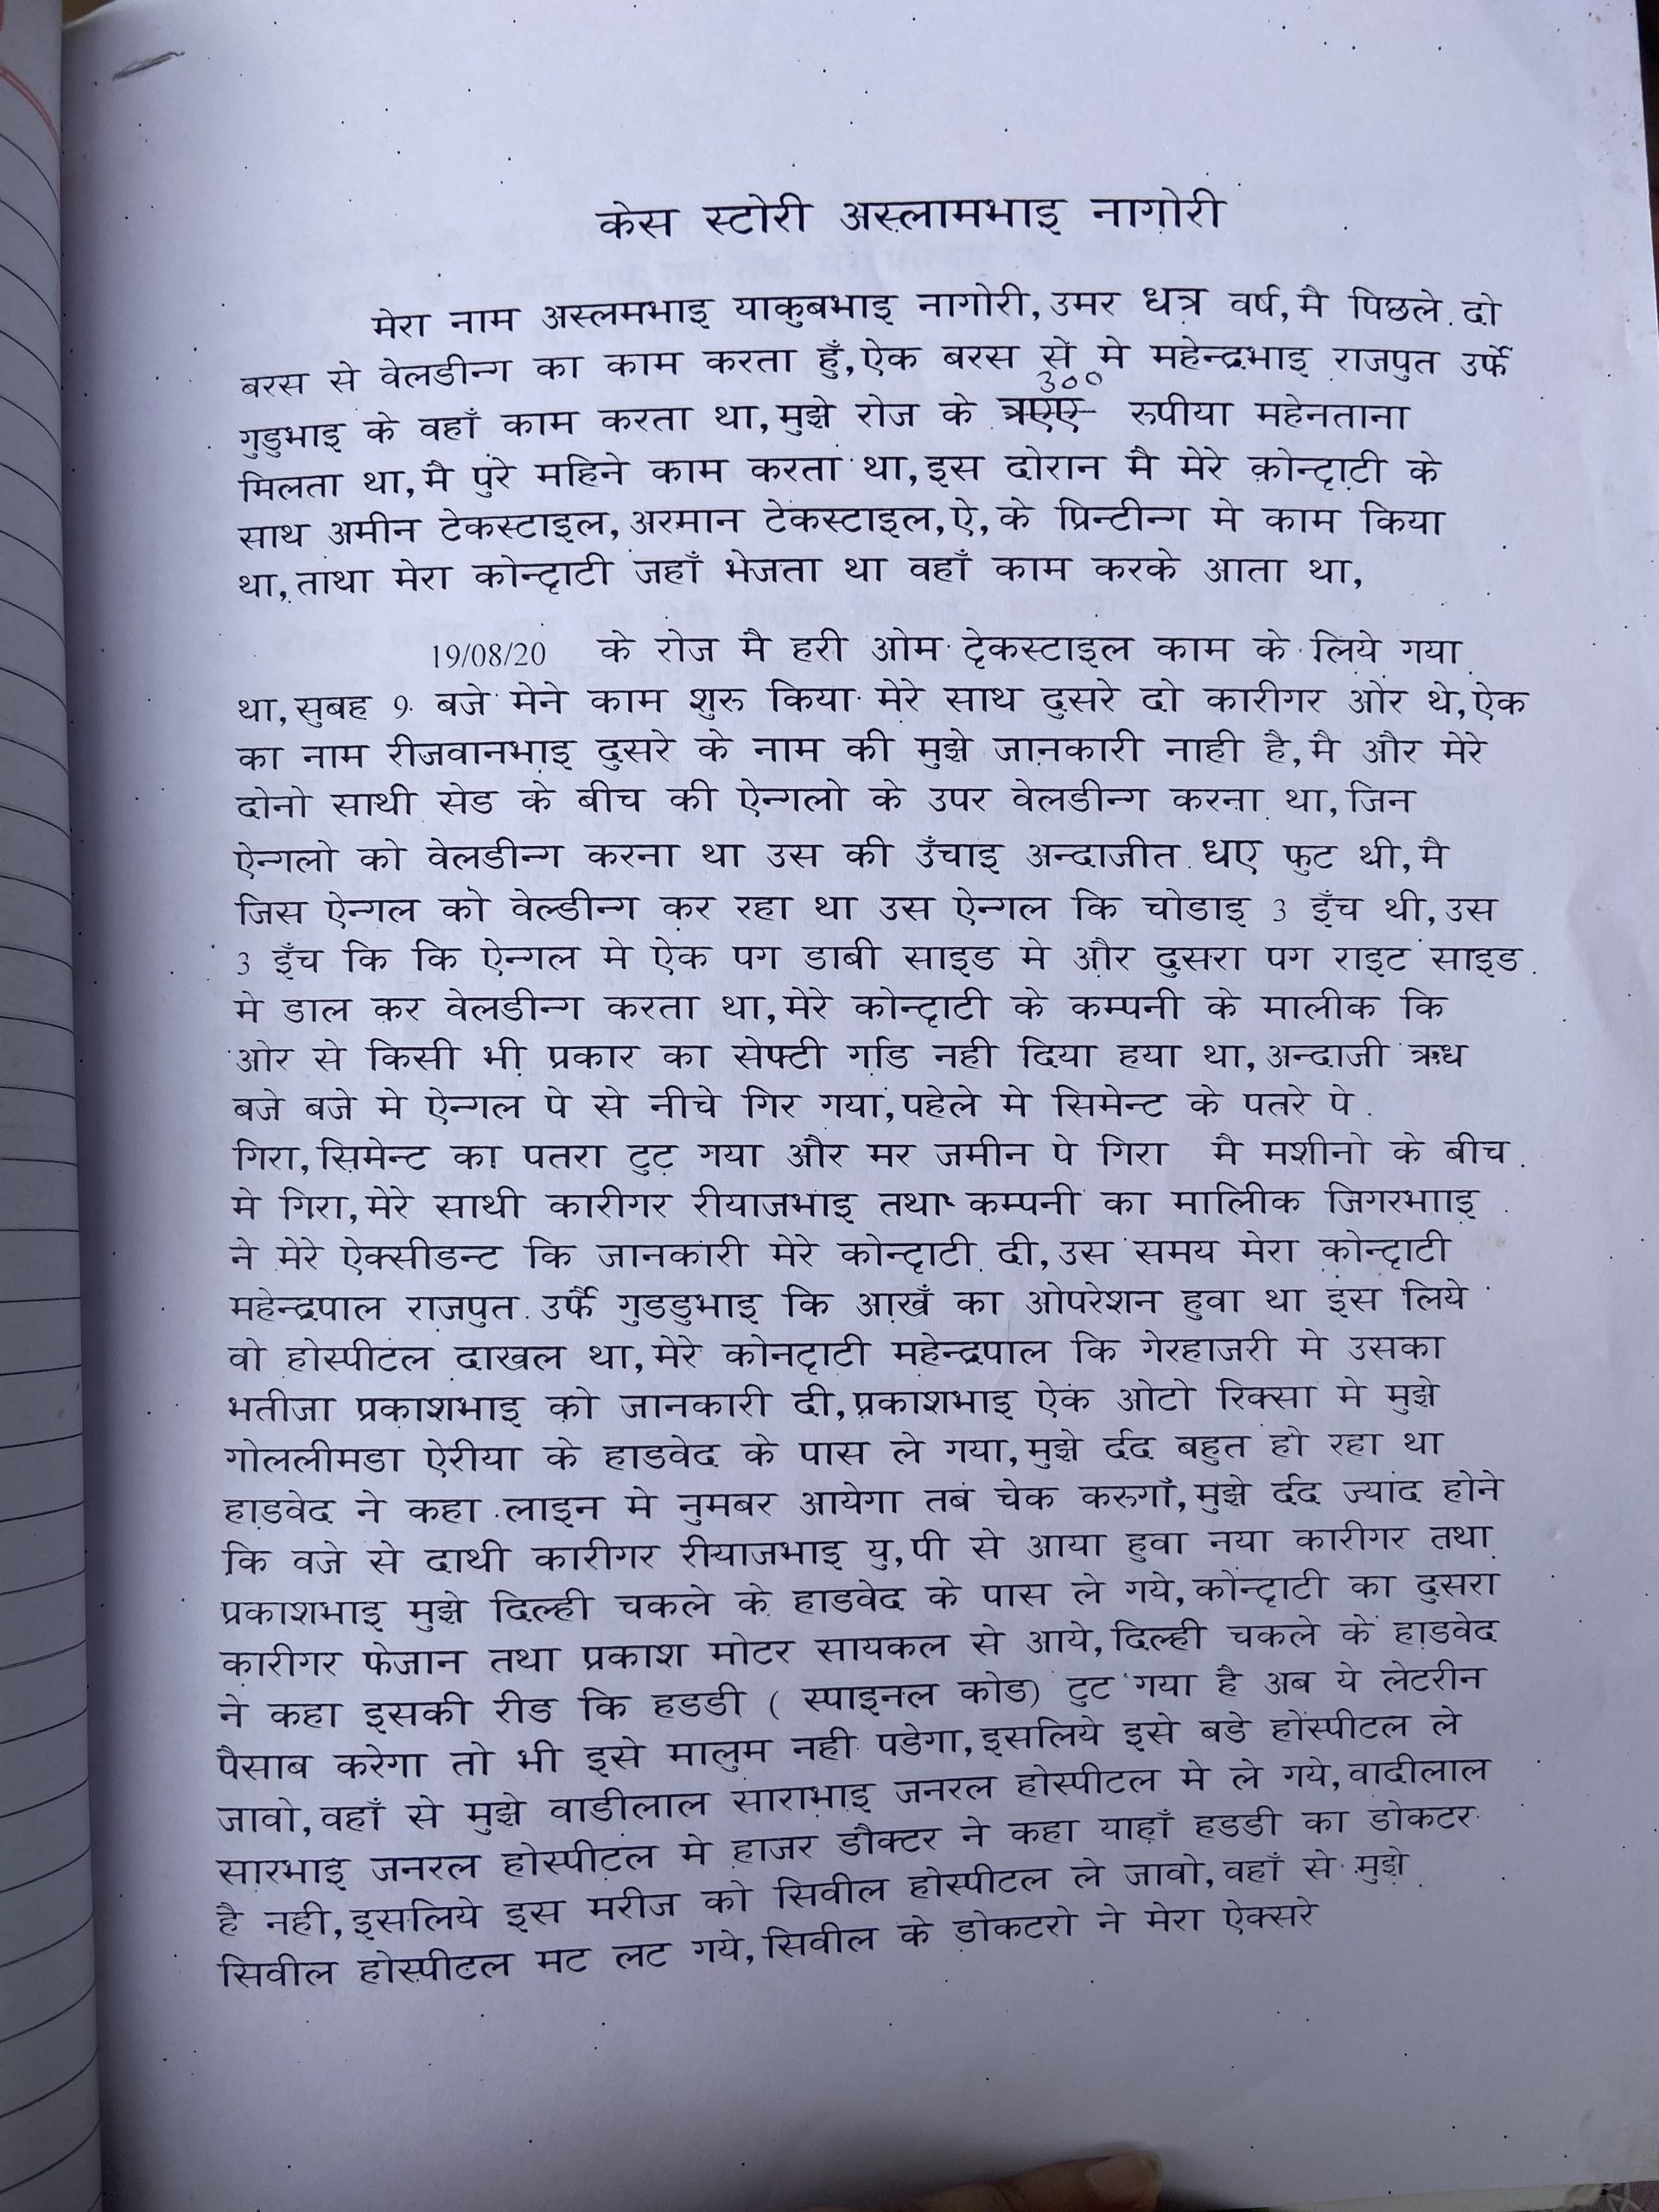 केस स्टोरी अस्लामभाइ नागोरी
मेरा नाम अस्लमभाइ याकुबभाइ नागोरी, उमर धत्र वर्ष, मै पिछले दो
बरस से वेलडीन्ग का काम करता हुँ, ऐक बरस से मे महेन्द्रभाइ राजपुत उर्फे
300
गुडुभाइ के वहाँ काम करता था, मुझे रोज के त्रएए रुपीया महेनताना
मिलता था, मै पुरे महिने काम करता था, इस दोरान मै मेरे कोन्द्राटी के
साथ अमीन टेकस्टाइल, अरमान टेकस्टाइल, ऐ, के प्रिन्टीन्ग मे काम किया
था, ताथा मेरा कोन्द्राटी जहाँ भेजता था वहाँ काम करके आता था,
19/08/20 के रोज मै हरी ओम द्रेकस्टाइल काम के लिये गया
था, सुबह 9 बजे मेने काम शुरु किया मेरे साथ दुसरे दो कारीगर ओर थे, ऐक
का नाम रीजवानभाइ दुसरे के नाम की मुझे जानकारी नाही है, मै और मेरे
दोनो साथी सेड के बीच की ऐन्गलो के उपर वेलडीन्ग करना था, जिन
ऐन्गलो को वेलडीन्ग करना था उस की उँचाइ अन्दाजीत धए फुट थी, मै
जिस ऐन्गल को वेल्डीन्ग कर रहा था उस ऐन्गल कि चोडाइ 3 इँच थी, उस
3 इँच कि कि ऐन्गल मे ऐक पग डाबी साइड मे और दुसरा पग राइट साइड
मे डाल कर वेलडीन्ग करता था, मेरे कोन्द्राटी के कम्पनी के मालीक कि
ओर से किसी भी प्रकार का सेफ्टी र्गाड नही दिया हया था, अन्दाजी ऋध
बजे बजे मे ऐन्गल पे से नीचे गिर गया, पहेले मे सिमेन्ट के पतरे पे
गिरा, सिमेन्ट का पतरा टुट गया और मर जमीन पे गिरा मै मशीनो के बीच
मे गिरा, मेरे साथी कारीगर रीयाजभाइ तथा कम्पनी का मालिीक जिगरभााइ
ने मेरे ऐक्सीडन्ट कि जानकारी मेरे कोन्द्राटी दी, उस समय मेरा कोन्द्राटी
महेन्द्रपाल राजपुत उर्फै गुडडुभाइ कि आखँ का ओपरेशन हुवा था इस लिये
वो होस्पीटल दाखल था, मेरे कोनद्राटी महेन्द्रपाल कि गेरहाजरी मे उसका
भतीजा प्रकाशभाइ को जानकारी दी, प्रकाशभाइ ऐक ओटो रिक्सा मे मुझे
गोललीमडा ऐरीया के हाडवेद के पास ले गया, मुझे र्दद बहुत हो रहा था
हाडवेद ने कहा लाइन मे नुमबर आयेगा तब चेक करुगाँ, मुझे र्दद ज्याद होने
कि वजे से दाथी कारीगर रीयाजभाइ यु, पी से आया हुवा नया कारीगर तथा
प्रकाशभाइ मुझे दिल्ही चकले के हाडवेद के पास ले गये, कोन्द्राटी का दुसरा
कारीगर फेजान तथा प्रकाश मोटर सायकल से आये, दिल्ही चकले के हाडवेद
ने कहा इसकी रीड कि हडडी ( स्पाइनल कोड) टुट गया है अब ये लेटरीन
पैसाब करेगा तो भी इसे मालुम नही पडेगा, इसलिये इसे बडे होस्पीटल ले
जावो, वहाँ से मुझे वाडीलाल साराभाइ जनरल होस्पीटल मे ले गये, वादीलाल
सारभाइ जनरल होस्पीटल मे हाजर डौक्टर ने कहा याहाँ हडडी का डोकटर
है नही, इसलिये इस मरीज को सिवील होस्पीटल ले जावो, वहाँ से मुझे
सिवील होस्पीटल मट लट गये, सिवील के डोकटरो ने मेरा ऐक्सरे